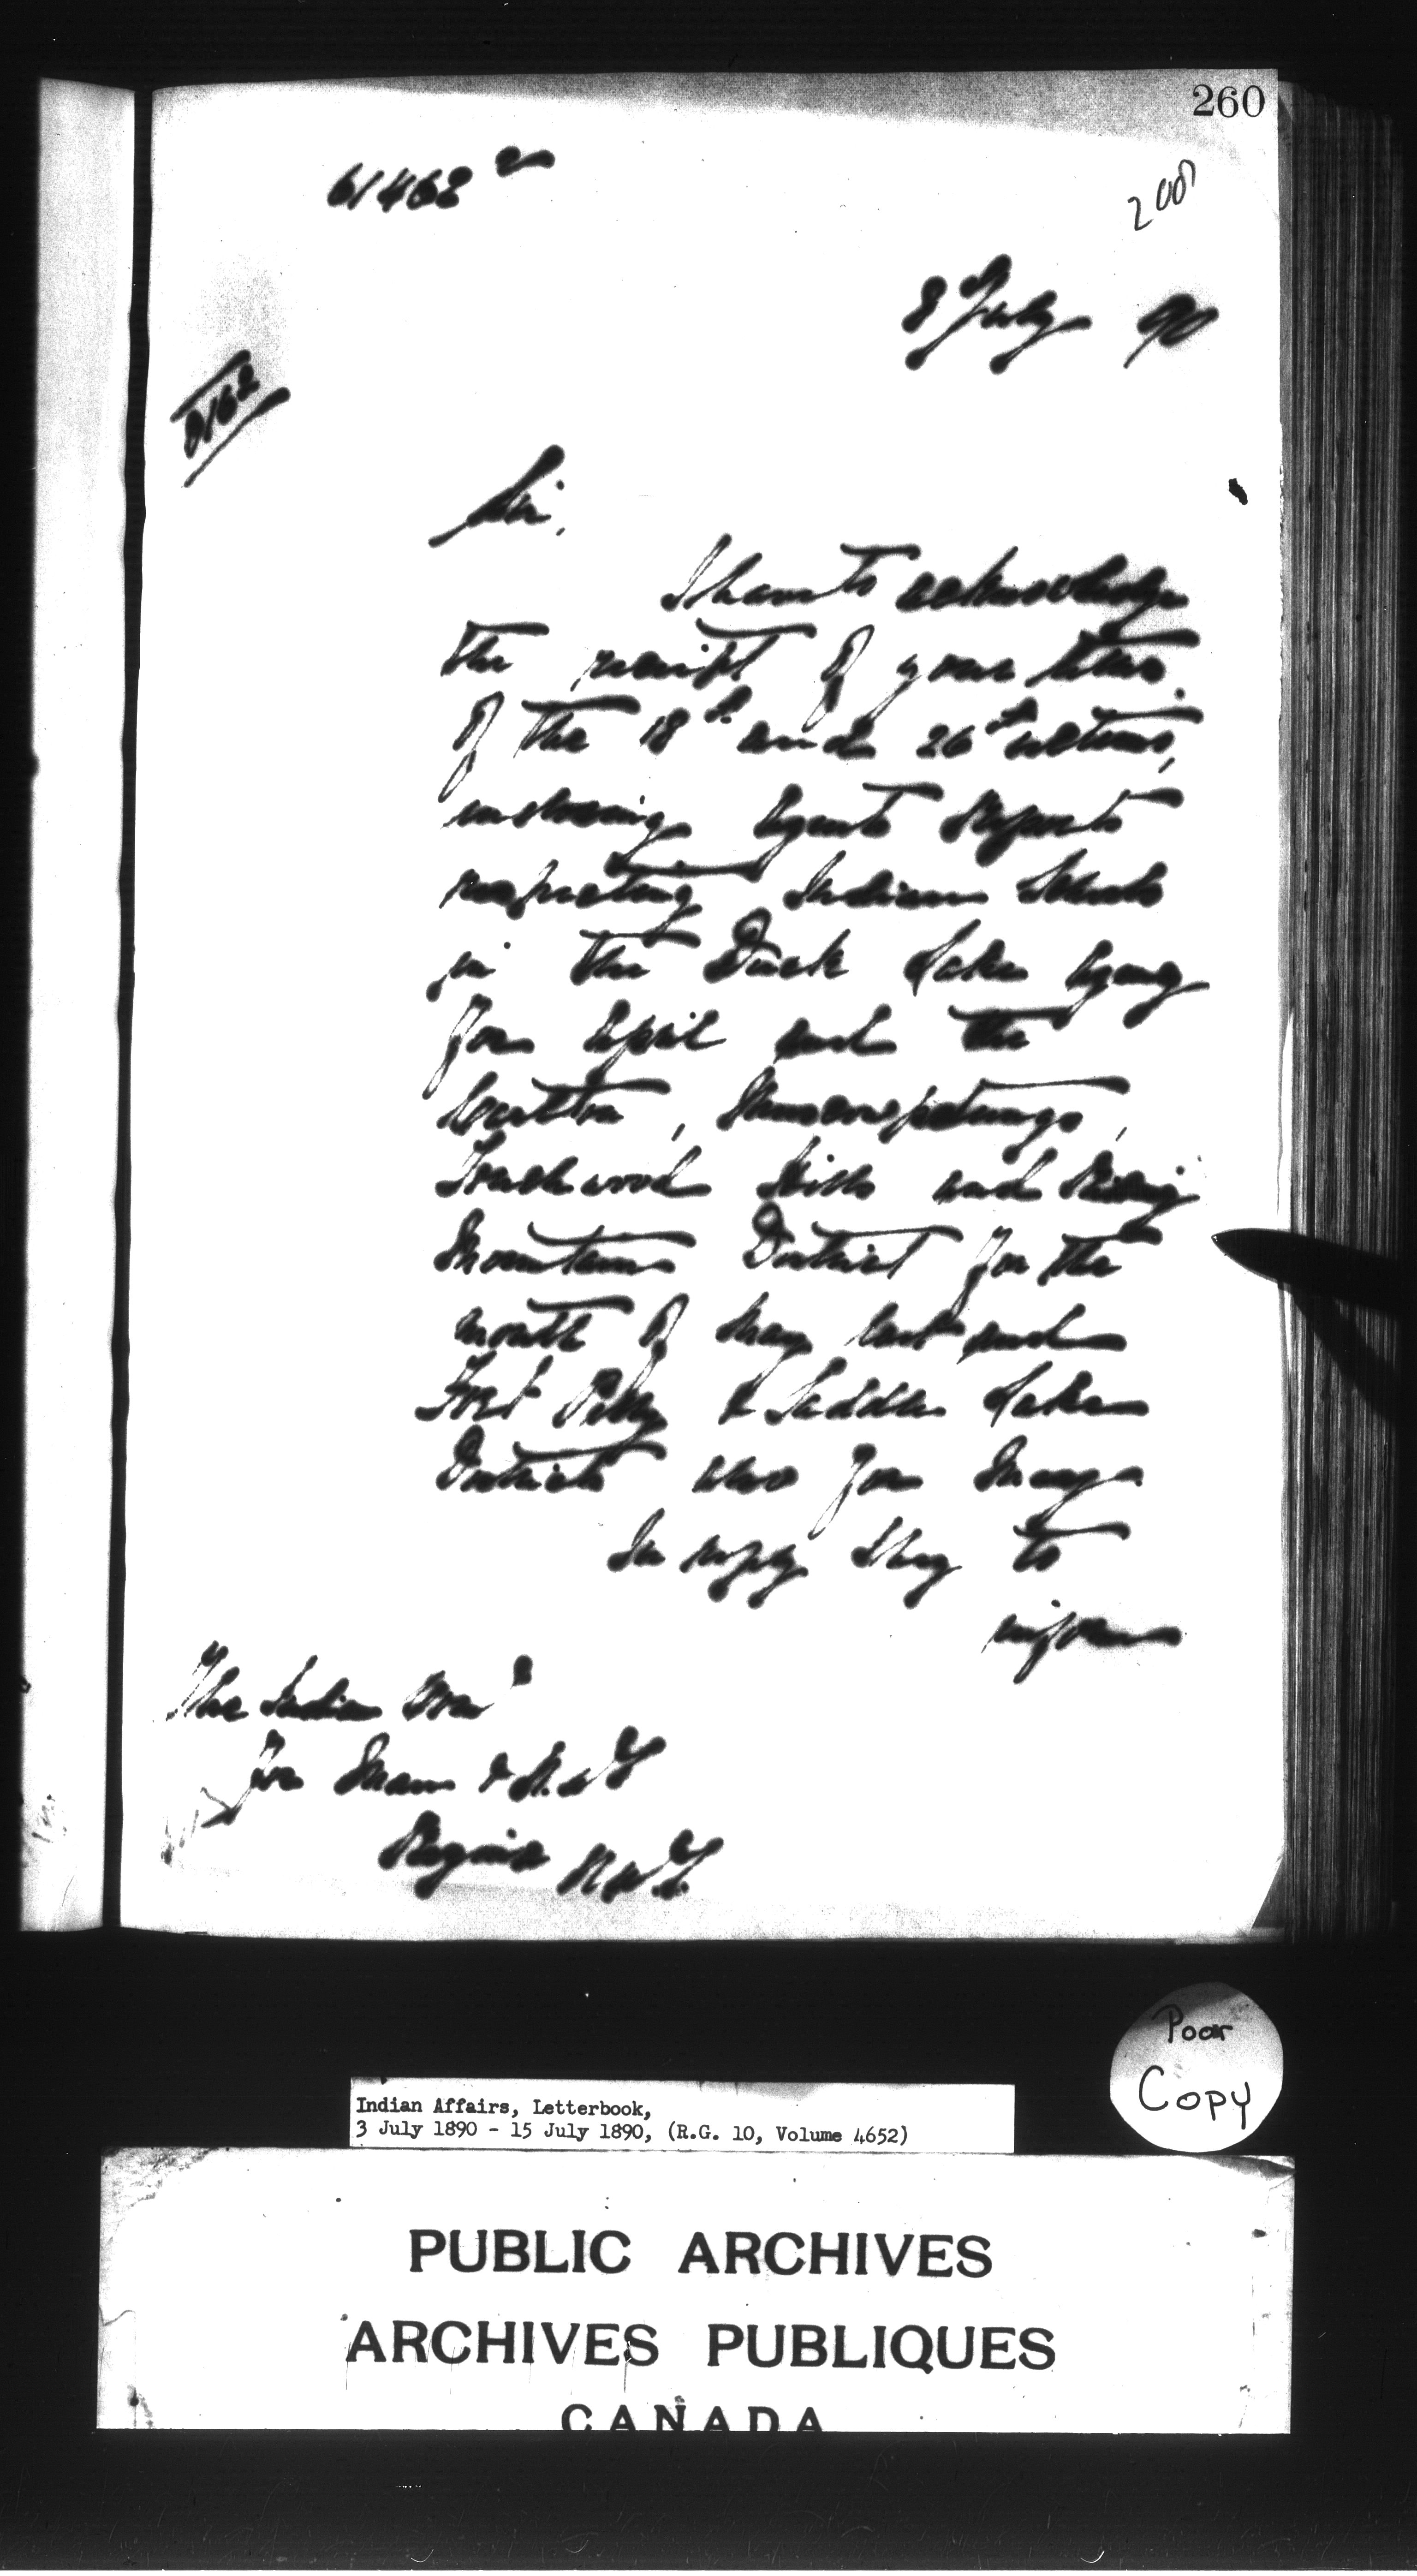 260
61462
2001
8 July 90
Sir,
I have to acknowledge
the receipt of your letters
of the 18th and 26th ultimo,
enclosing Agents Reports
respecting Indian Schools
in the Duck Lake Agency
for April and the
Battle, Muscowpetungs,
Touchwood Hills and Riding
Mountain District for the
month of May last and
Fort Pitt & Saddle Lake
Districts also for May
In reply I beg to
inform
The Indian Comr
for Man & N.W.T
Regina N.W.T.
Poor
Copy
Indian Affairs, Letterbook,
3 July 1890 - 15 July 1890, (R.G. 10, Volume 4652)
PUBLIC ARCHIVES
ARCHIVES PUBLIQUES
CANADA